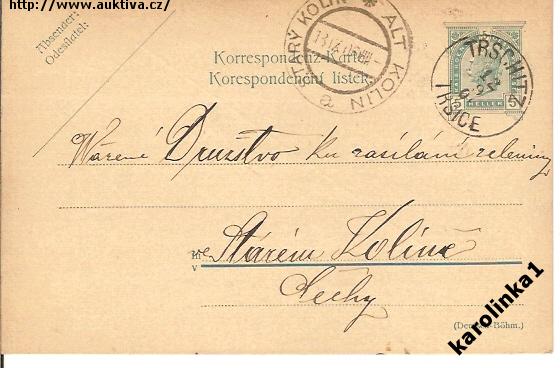 http://www.auktiva.cz/
Absender:
Odesílatel:
Korrespondenz-Karte
Korespondenční lístek
STARÝ KOLÍN * ALT KOLIN
TRSCHITZ
TRŠICE
5 HELLER 5
Vážené Družstvo ku zasílání zeleniny
ve Starém Kolíně
Čechy
(Deutsch-Böhm.)
karolinka1